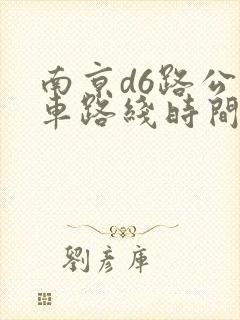 南京d6路公
車路綫時間
劉彥庫